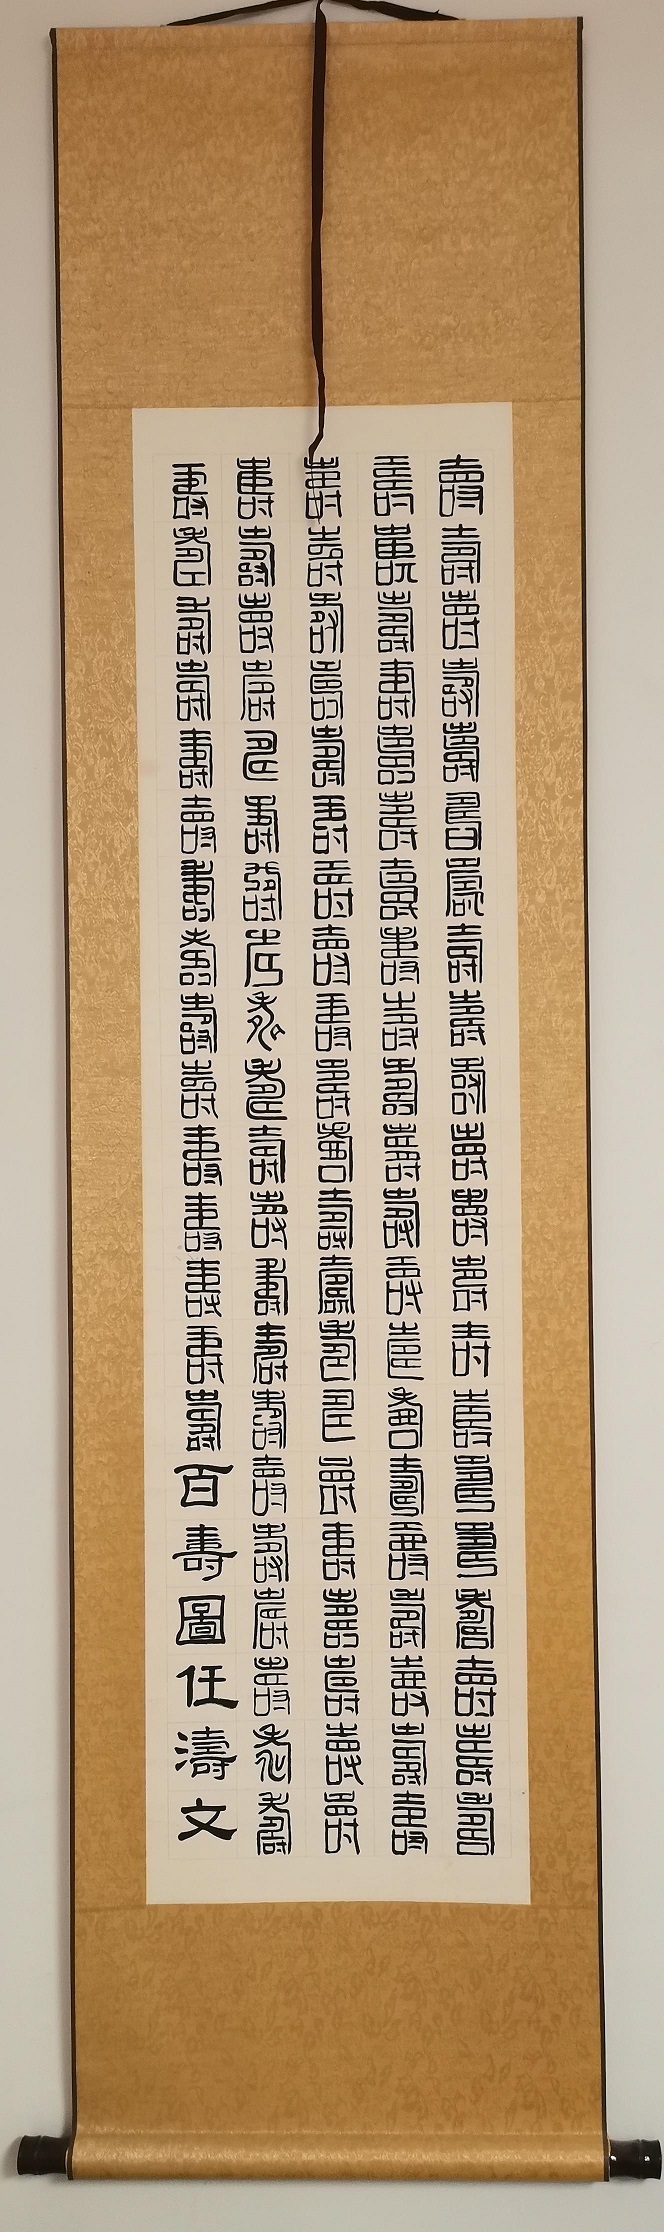 壽壽壽壽壽壽壽壽壽壽壽壽壽壽壽壽壽壽壽壽壽
壽壽壽壽壽壽壽壽壽壽壽壽壽壽壽壽壽壽壽壽壽
壽壽壽壽壽壽壽壽壽壽壽壽壽壽壽壽壽壽壽壽壽
壽壽壽壽壽壽壽壽壽壽壽壽壽壽壽壽壽壽壽壽壽
壽壽壽壽壽壽壽壽壽壽壽壽壽壽壽百壽圖任濤文